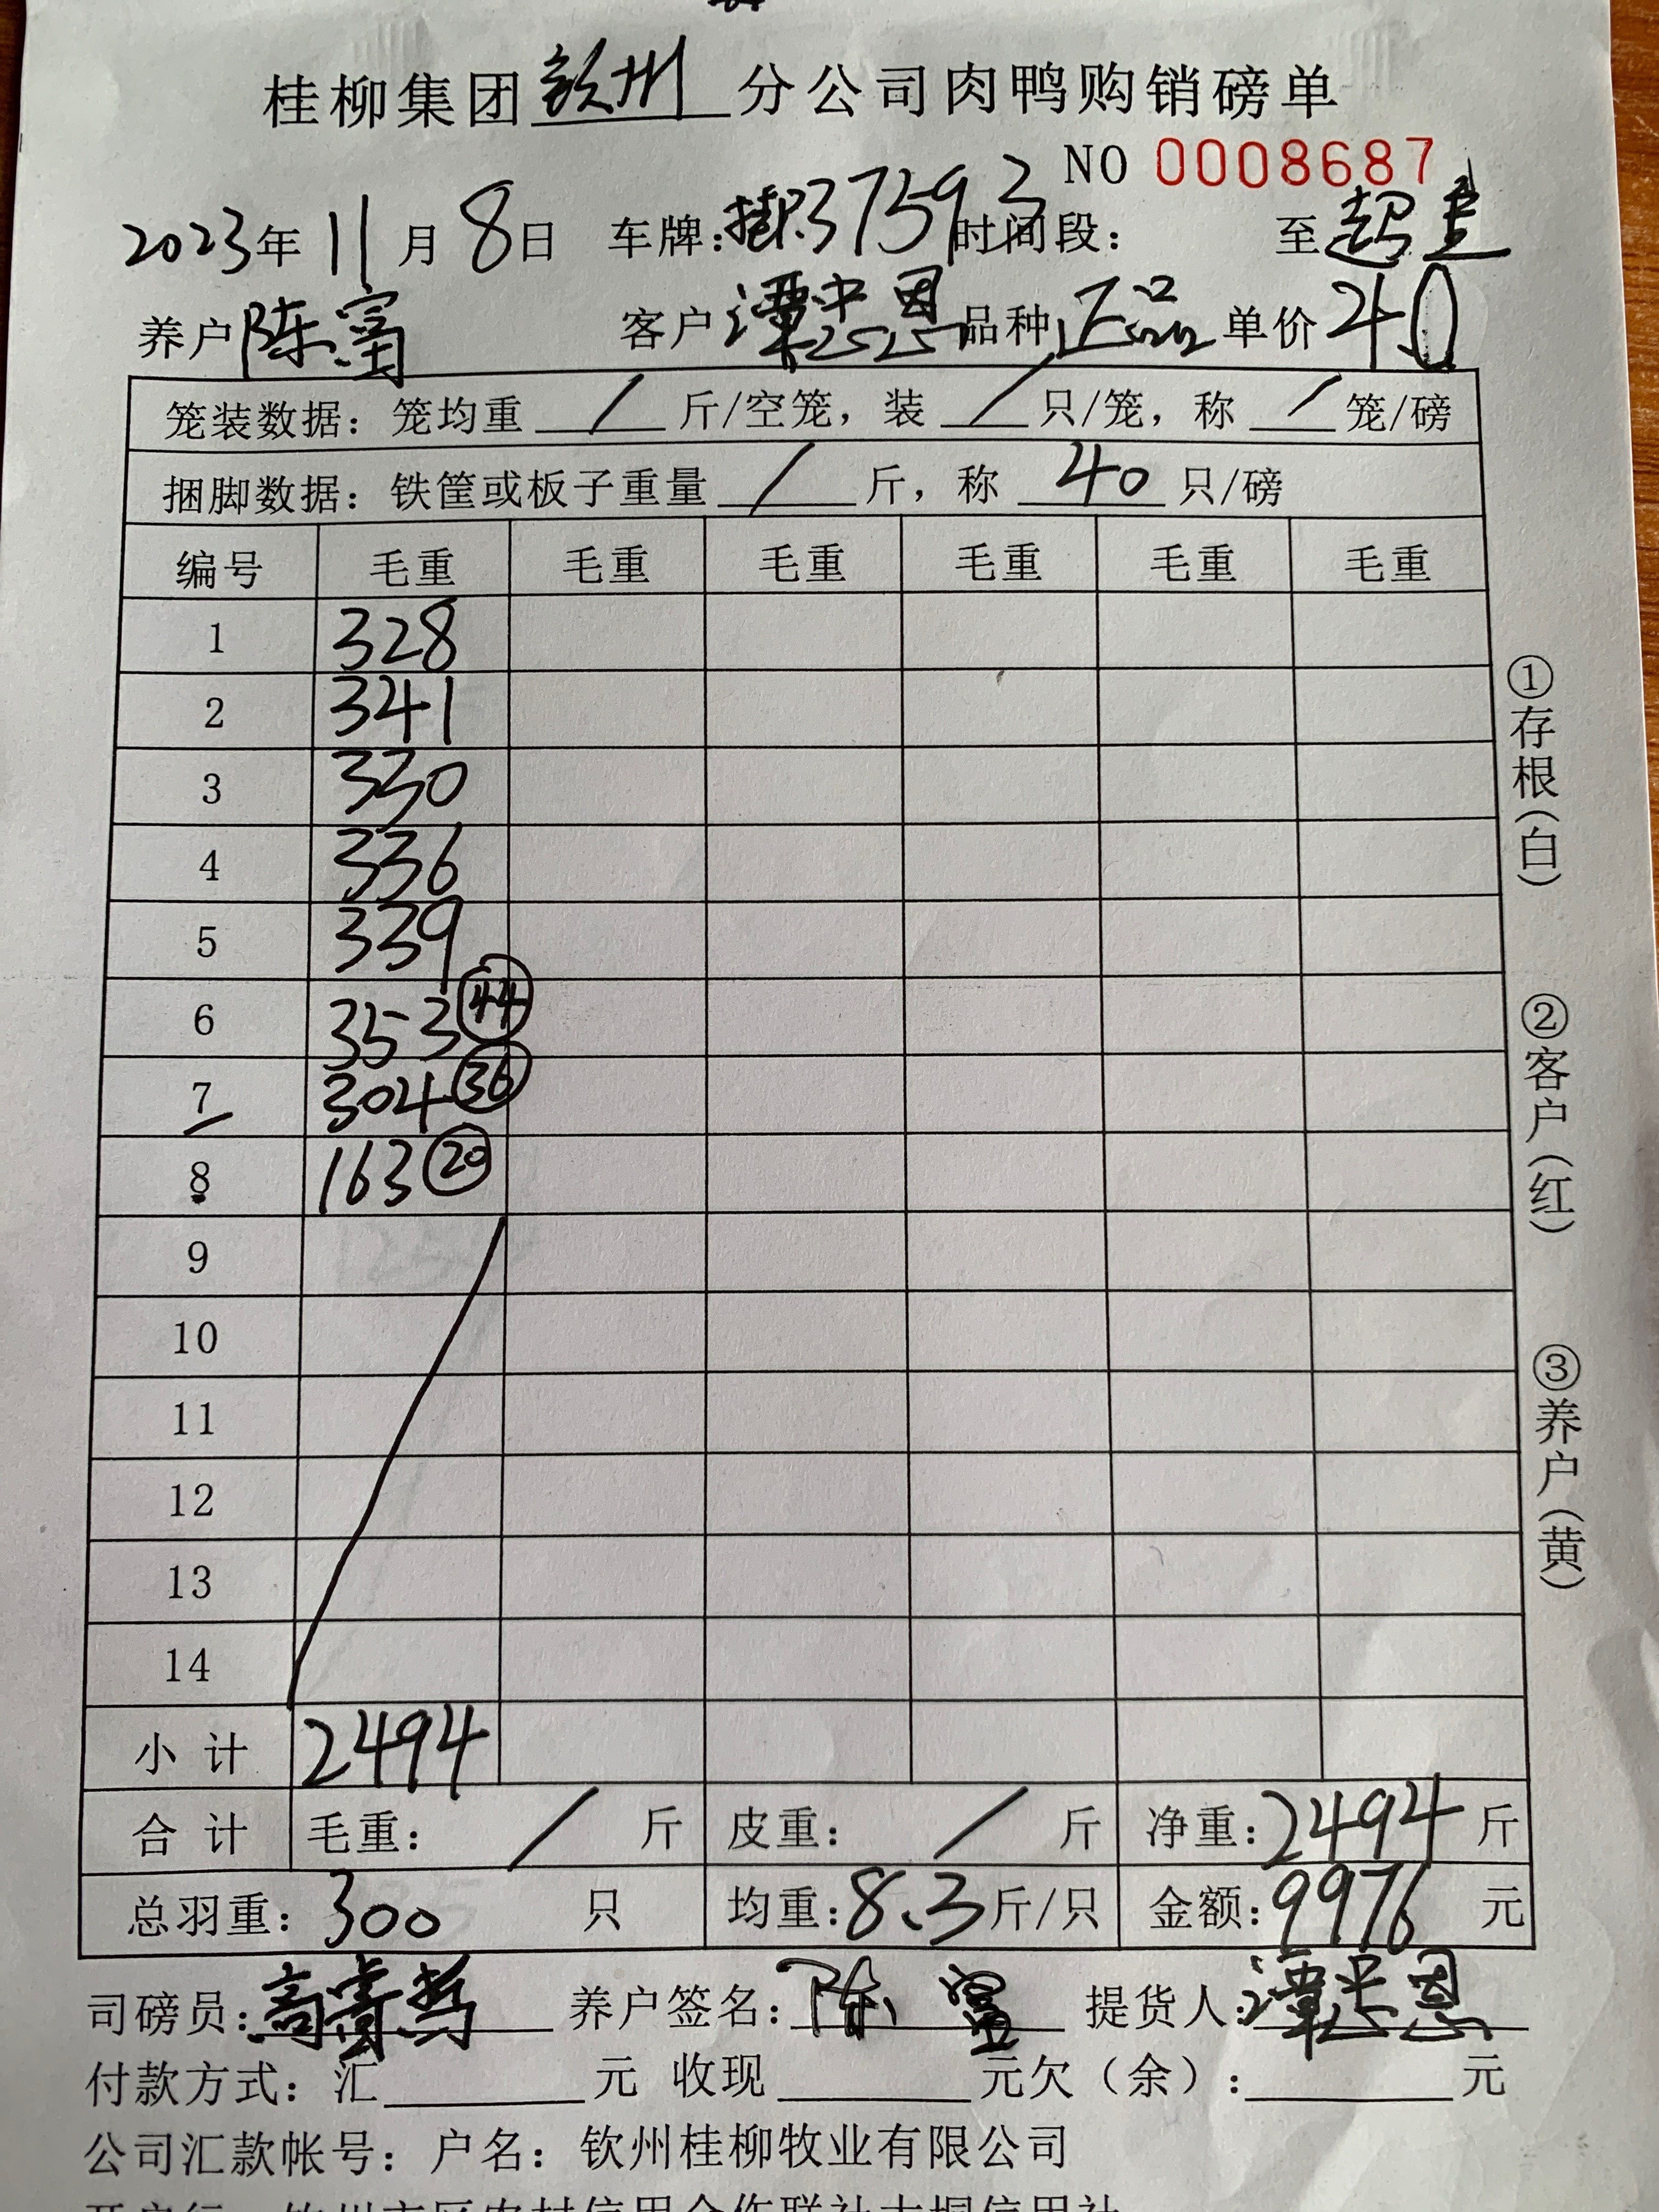 桂柳集团钦州分公司肉鸭购销磅单
NO 0008687
2023年 11月 8日 车牌:桂P.37593 时间段: 至
养户 陈富 客户 谭忠恩 品种 正品 单价 4.0
笼装数据: 笼均重 / 斤/空笼, 装 / 只/笼, 称 / 笼/磅
捆脚数据: 铁筐或板子重量 / 斤, 称 40 只/磅
编号 毛重 毛重 毛重 毛重 毛重 毛重
1 328
2 341
3 330
4 336
5 339
6 353 44
7 304 36
8 163 20
9
10
11
12
13
14
小计 2494
合计 毛重: / 斤 皮重: / 斤 净重: 2494 斤
总羽重: 300 只 均重: 8.3 斤/只 金额: 9976 元
①存根(白) ②客户(红) ③养户(黄)
司磅员: 高寿哲 养户签名: 陈富 提货人: 谭忠恩
付款方式: 汇 元 收现 元欠(余): 元
公司汇款帐号: 户名: 钦州桂柳牧业有限公司